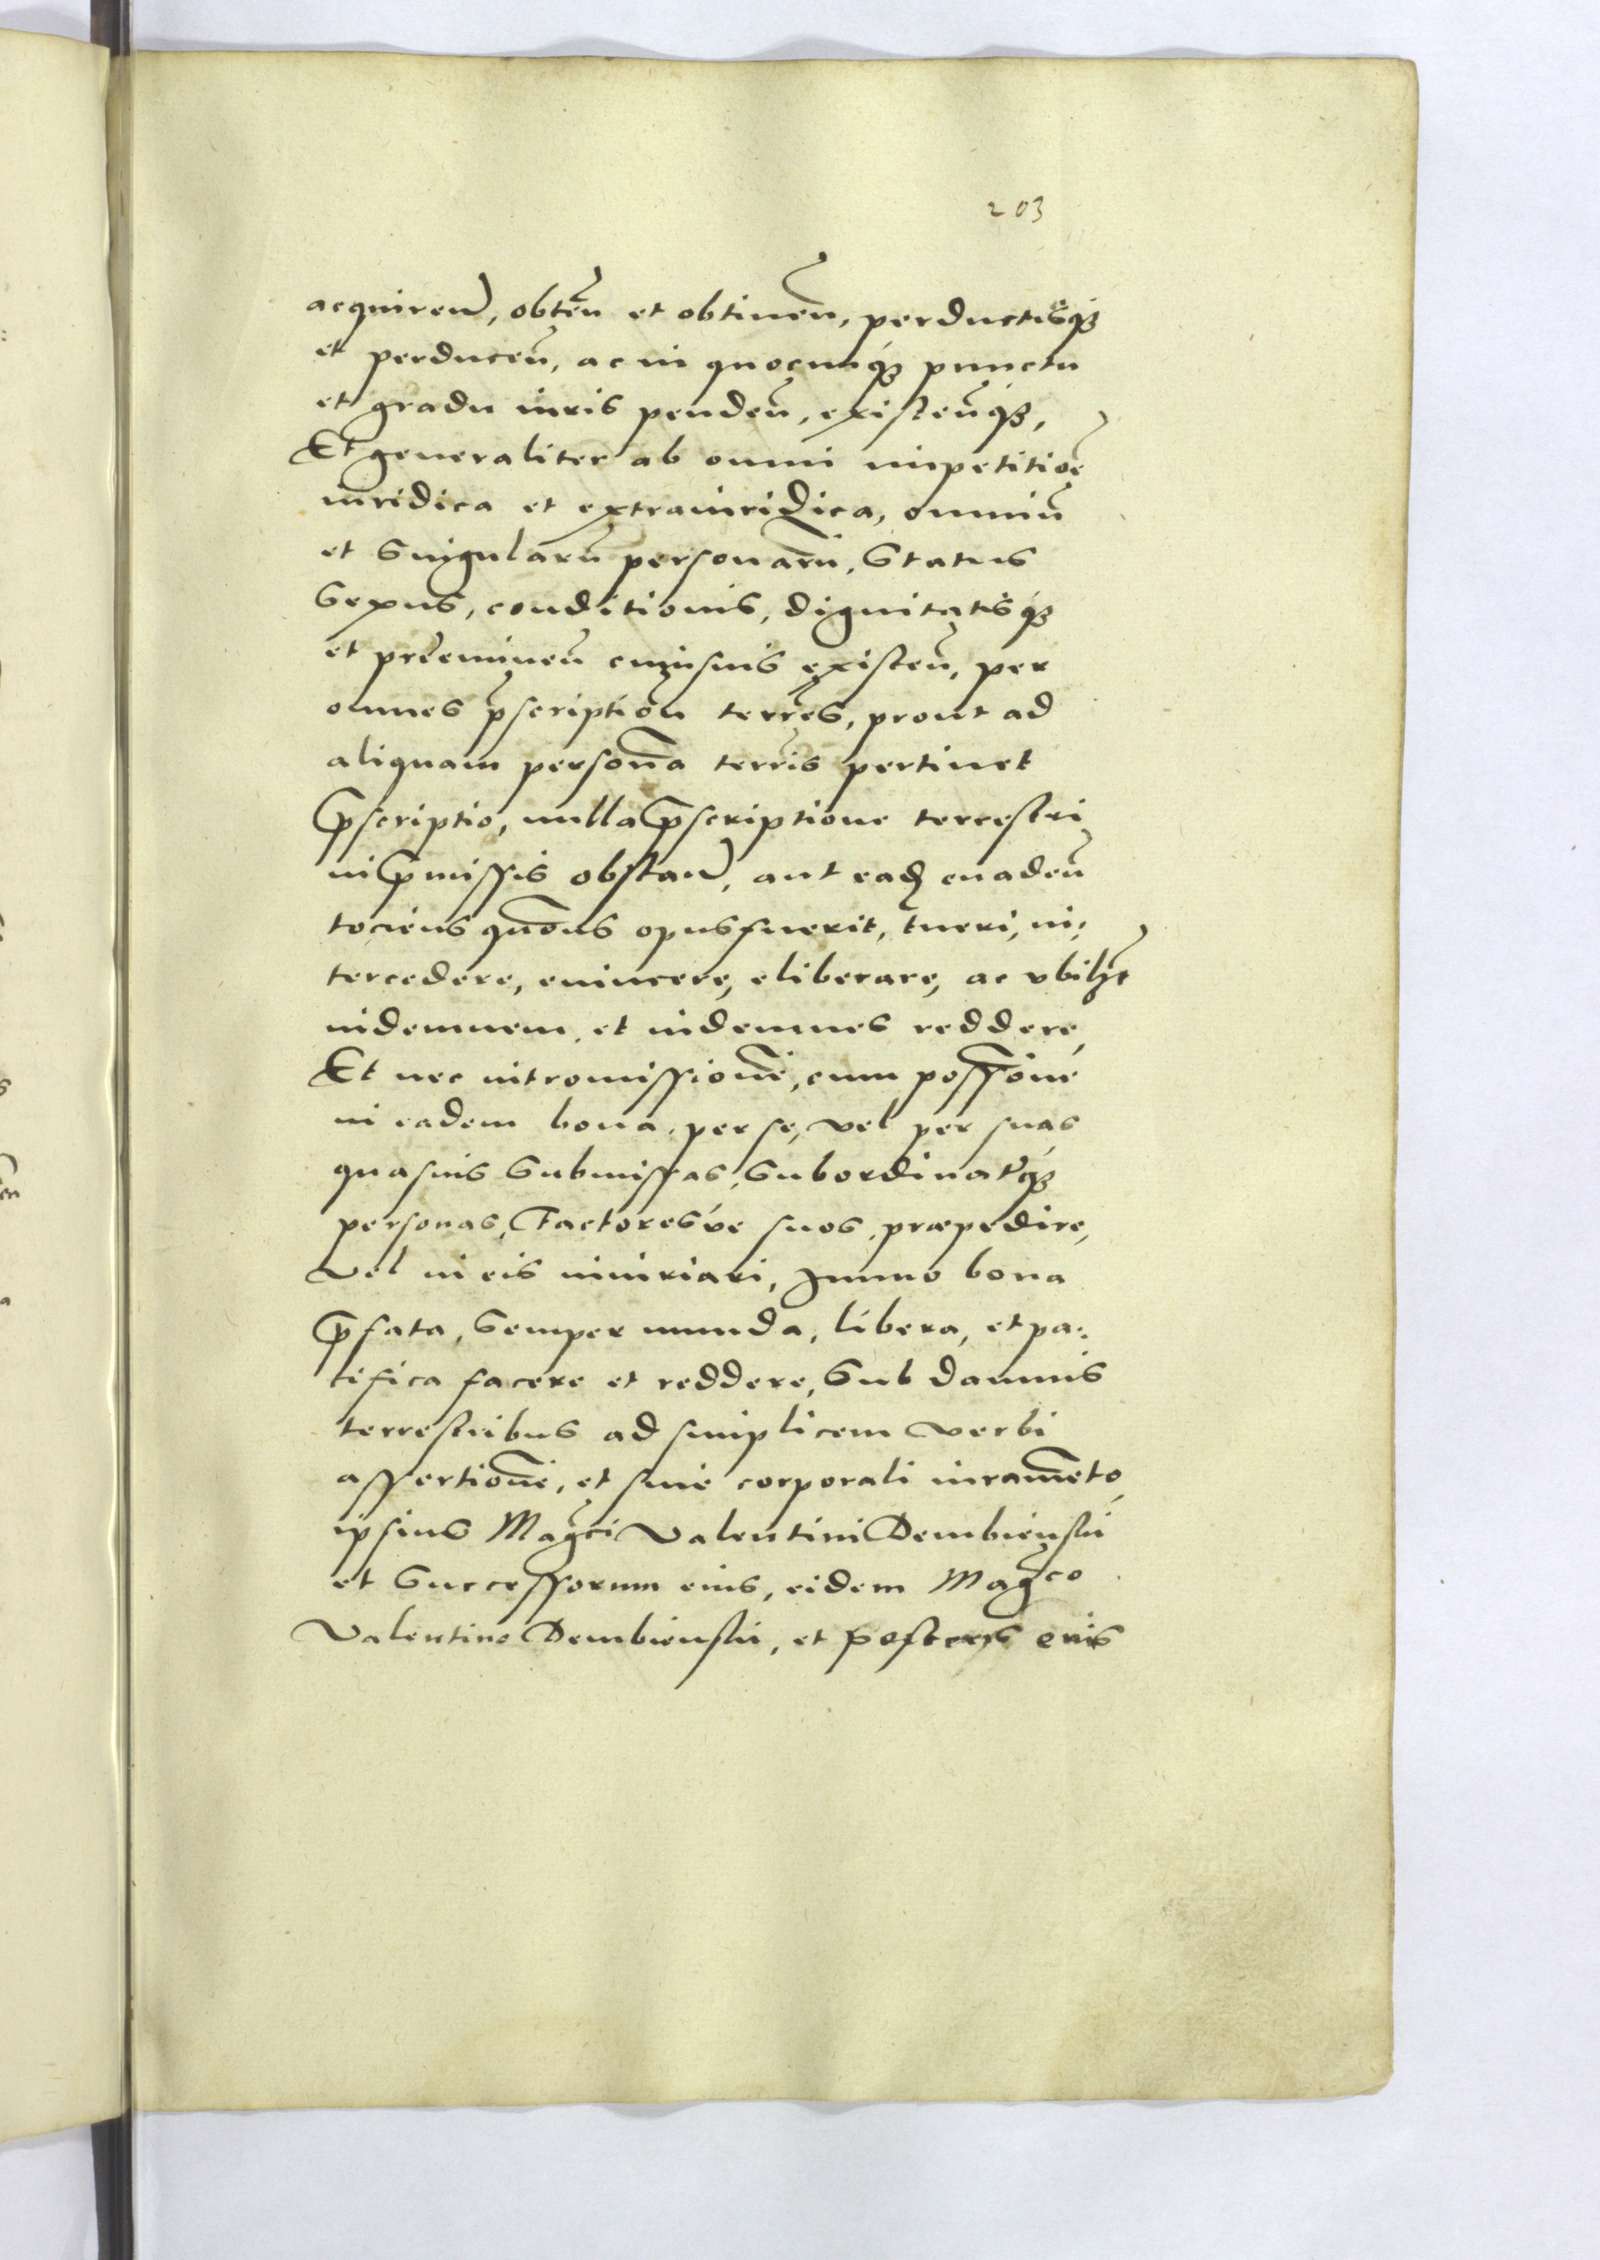 203
acquireñ, obteñ et obtineñ, perductisq3
et perduceñ, ac in quocunq3 punctu
et gradu iuris pendeñ, existeñq3,
Et generaliter ab omni impetitioe
iuridica et extraiuridica, omniũ
et singularũ personarũ, Status
Sexus, conditionis, dignitatisq3
et preemineñ cuiusuis existeñ, per
omnes p̃scriptioñ terr̃es, prout ad
aliquam persona terr̃is pertinet
p̃scriptio, nulla p̃scriptione terrestri
in p̃missis obstañ, aut ead euadeñ
tociens quõns opus fuerit, tueri, in:
tercedere, euincere, eliberare, ac vbilt
indemnem et indemnes reddere,
Et nec intromissione, cum possione
in eadem bona, per se, vel per suas
quasuis Submissas, Subordinatq3
personas, Factoresve suos, præpedire,
Vel in eis iniuriari, Immo bona
p̃fata, Semper munda, libera, et pa:
cifica facere et reddere, Sub damnis
terrestribus ad simplicem verbi
assertione, et sine corporali iuramẽto,
ipsius Magci Valentini Dembienskii
et Successorum eius, eidem Magco
Valentino Dembienskii, et posteris eius